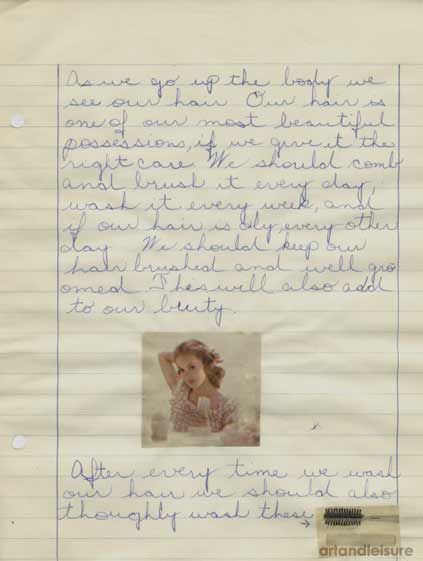 As we go up the body we
see our hair. Our hair is
one of our most beautiful
possessions, if we give it the
right care. We should comb
and brush it every day,
wash it every week, and
if our hair is oily, every other
day. We should keep our
hair brushed and well gro
omed. This will also add
to our beuty.
After every time we wash
our hair we should also
thoughly wash these →
artandleisure